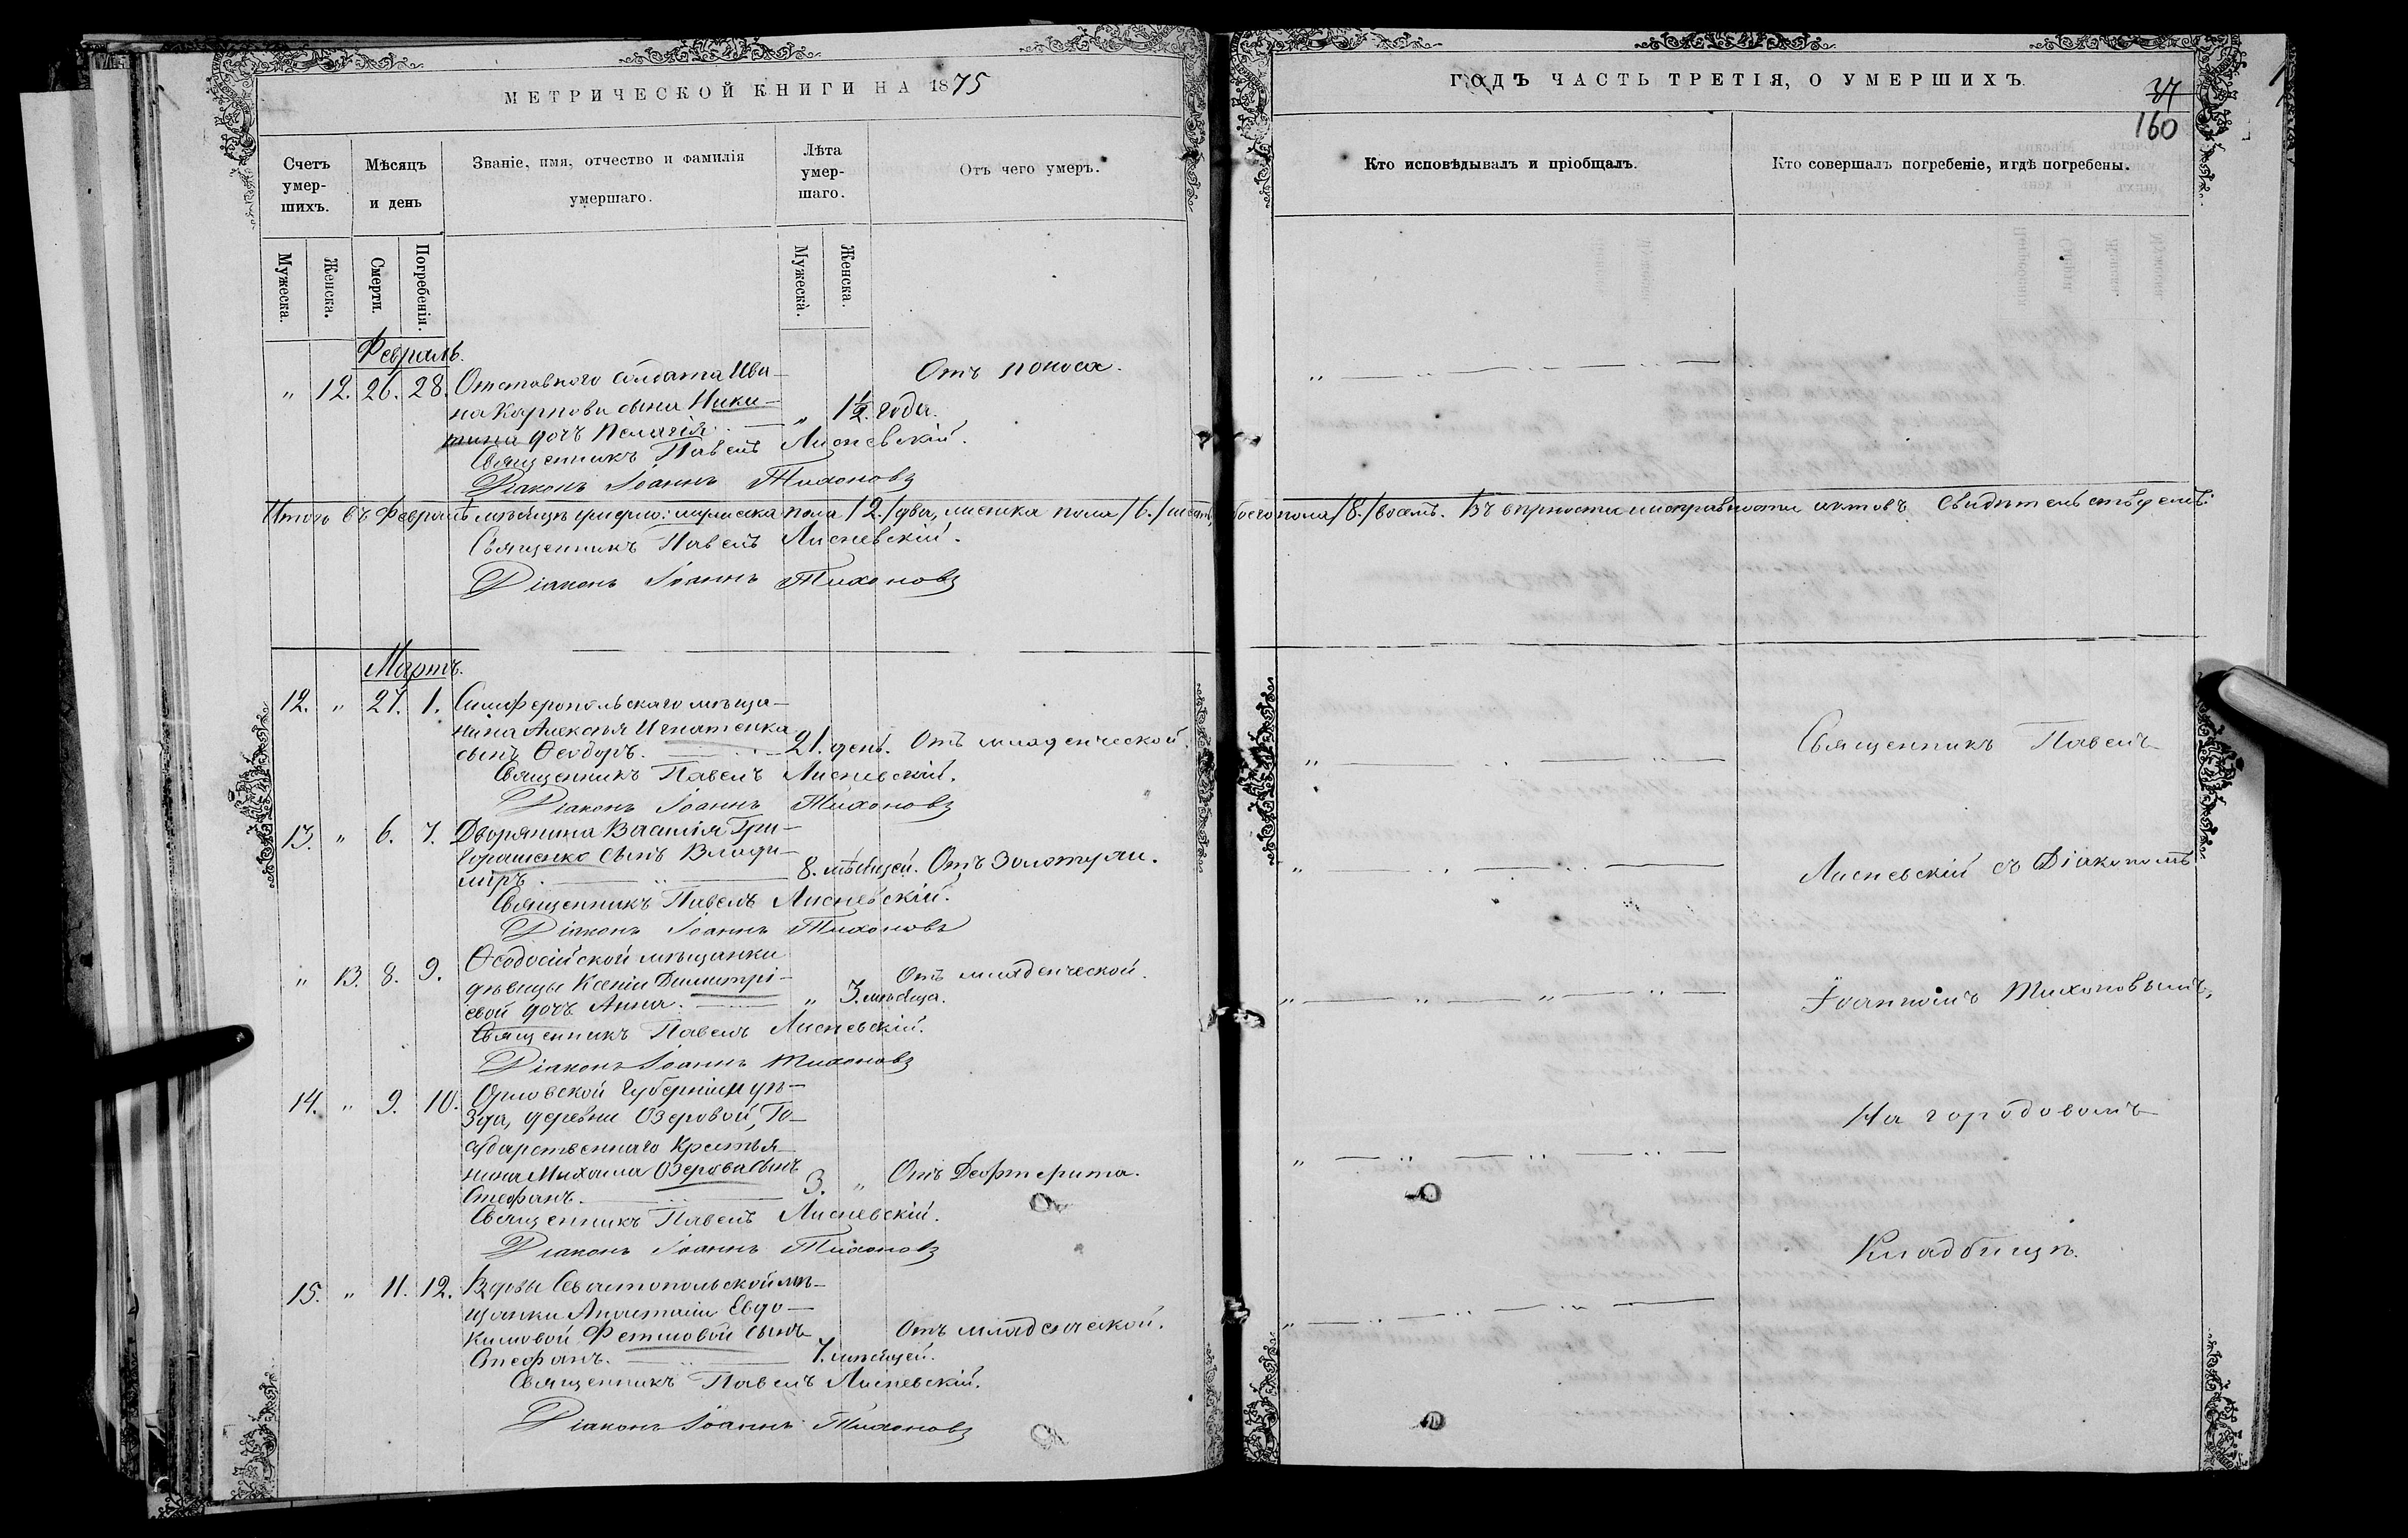 МЕТРИЧЕСКОЙ КНИГИ НА 1875
Счетъ умер-шихъ.
Мѣсяцъ и день
Званіе, имя, отчество и фамилія умершаго.
Лѣта умер-шаго.
Отъ чего умеръ.
Мужеска.
Женска.
Смерти.
Погребенія.
Мужеска.
Женска.
Февраль.
" 12. 26. 28. Отставного солдата Ива-
на Карпова сына Ники-
тина дочь Пелагія. " 1½ года. Отъ поноса.
Священникъ Павелъ Лисневскій.
Діаконъ Іоаннъ Тихоновъ
Итого въ Февралѣ мѣсяцѣ умерло: мужеска пола /2./ два, женска пола /6./ шесть, обоего пола /8./ восемь. Въ вѣрности и исправности актовъ свидѣтельствуемъ:
Священникъ Павелъ Лисневскій.
Діаконъ Іоаннъ Тихоновъ
Мартъ.
12. " 27. 1. Симферопольскаго мѣща-
нина Алексѣя Игнатенка
сынъ Ѳеодоръ. 21. день. Отъ младенческой.
Священникъ Павелъ Лисневскій.
Діаконъ Іоаннъ Тихоновъ
13. " 6. 7. Дворянина Василія Гри-
горашенко сынъ Влади-
міръ. 8. мѣсяцей. Отъ Золотухи.
Священникъ Павелъ Лисневскій.
Діаконъ Іоаннъ Тихоновъ
" 13. 8. 9. Ѳеодосійской мѣщанки
дѣвицы Ксеніи Димитрі-
евой дочь Анна. " 3. мѣсяца. Отъ младенческой.
Священникъ Павелъ Лисневскій.
Діаконъ Іоаннъ Тихоновъ
14. " 9. 10. Орловской Губерніи и уѣ-
зда, деревни Озеровой, Го-
сударственнаго Крестья-
нина Михаила Озерова сынъ
Стефанъ. 3. " Отъ Дефтерита.
Священникъ Павелъ Лисневскій.
Діаконъ Іоаннъ Тихоновъ
15. " 11. 12. Вдовы Севастопольской мѣ-
щанки Анастасіи Евдо-
кимовой Фетисовой сынъ
Стефанъ. 7. мѣсяцей. Отъ младенческой.
Священникъ Павелъ Лисневскій.
Діаконъ Іоаннъ Тихоновъ
ГОДЪ ЧАСТЬ ТРЕТІЯ, О УМЕРШИХЪ.
160
Кто исповѣдывалъ и пріобщалъ.
Кто совершалъ погребеніе, и гдѣ погребены.
Священникъ Павелъ
Лисневскій съ Діакономъ
Іоанномъ Тихоновымъ,
На городовомъ
Кладбищѣ.